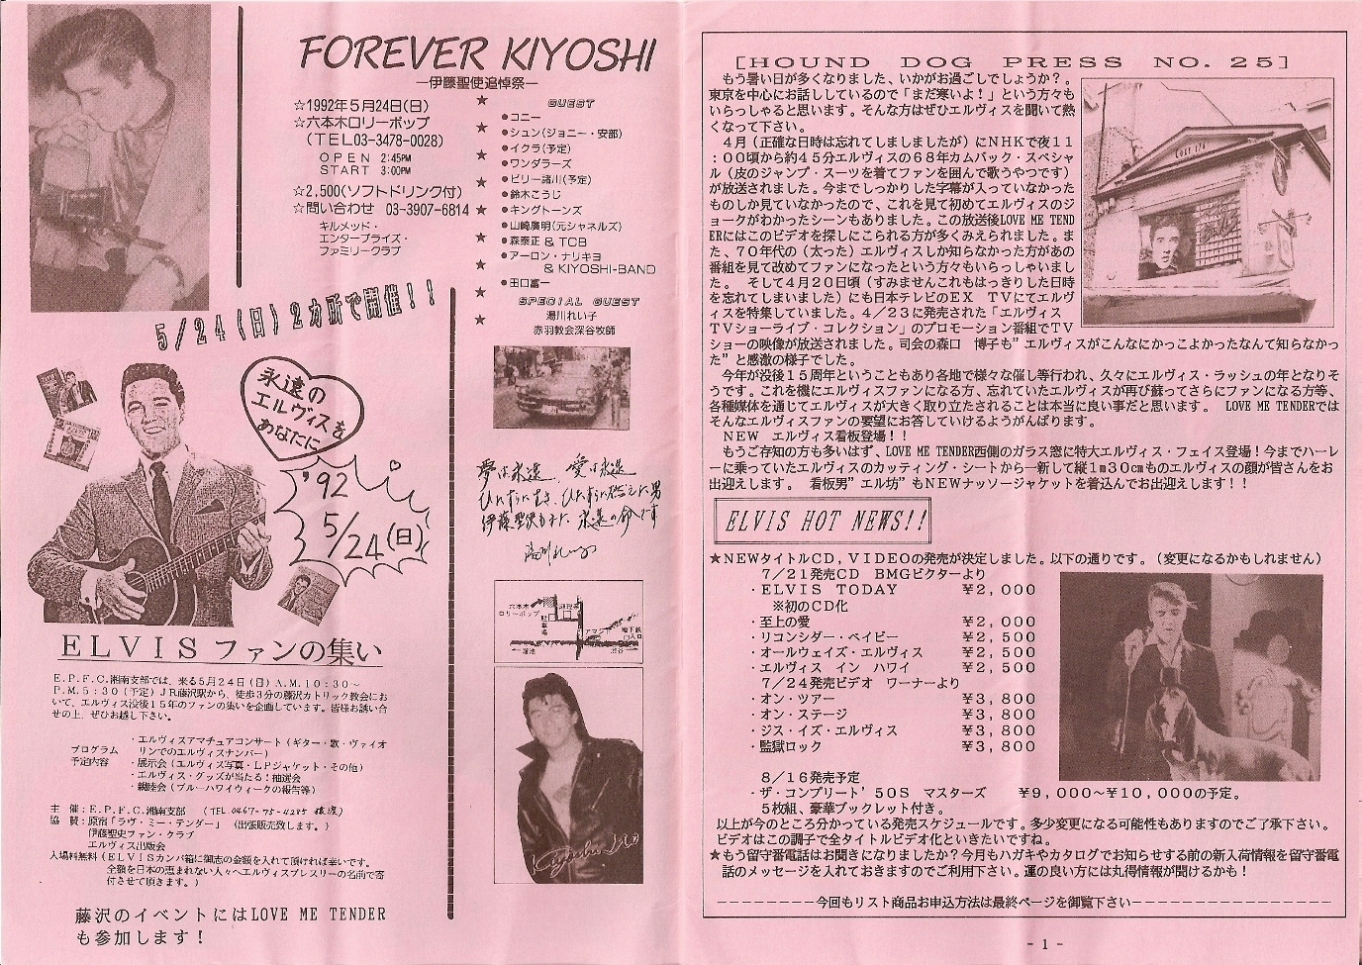 FOREVER KIYOSHI
―伊藤聖使追悼祭―
☆1992年5月24日(日)
☆六本木ロリーポップ
(TEL03-3478-0028)
OPEN 2:45PM
START 3:00PM
☆2.500(ソフトドリンク付)
☆問い合わせ 03-3907-6814
キルメッド・
エンタープライズ・
ファミリークラブ
GUEST
●コニー
●シュン(ジョニー・安部)
●イクラ(予定)
●ワンダラーズ
●ビリー諸川(予定)
●鈴木こうじ
●キングトーンズ
●山崎廣明(元シャネルズ)
●森泰正 & TCB
●アーロン・ナリキヨ
& KIYOSHI-BAND
●田口富一
SPECIAL GUEST
湯川れい子
赤羽教会深谷牧師
5/24(日)2カ所で開催!!
永遠の
エルヴィスを
あなたに
'92
5/24(日)
夢は永遠 愛は永遠
六本木
ロリーポップ
ELVIS ファンの集い
E.P.F.C.湘南支部では、来る5月24日(日)A.M.10:30~
P.M.5:30(予定)JR藤沢駅から、徒歩3分の藤沢カトリック教会にお
いて、エルヴィス没後15年のファンの集いを企画しています。皆様お誘い合
せの上、ぜひお越し下さい。
プログラム
予定内容
・エルヴィスアマチュアコンサート(ギター・歌・ヴァイオ
リンでのエルヴィスナンバー)
・展示会(エルヴィス写真・LPジャケット・その他)
・エルヴィス・グッズが当たる!抽選会
・親睦会(ブルーハワイウィークの報告等)
主 催:E.P.F.C.湘南支部 (TEL 0467-75-4285
協 賛:原宿「ラヴ・ミー・テンダー」(出張販売致します。)
伊藤聖史ファン・クラブ
エルヴィス出版会
入場料無料(ELVISカンパ箱に御志の金額を入れて頂ければ幸いです。
全額を日本の恵まれない人々へエルヴィスプレスリーの名前で寄
付させて頂きます。)
藤沢のイベントにはLOVE ME TENDER
も参加します!
Kiyoshi Ito
[HOUND DOG PRESS NO.25]
もう暑い日が多くなりました、いかがお過ごしでしょうか?。
東京を中心にお話ししているので「まだ寒いよ!」という方々も
いらっしゃると思います。そんな方はぜひエルヴィスを聞いて熱
くなって下さい。
4月(正確な日時は忘れてしましましたが)にNHKで夜11
:00頃から約45分エルヴィスの68年カムバック・スペシャ
ル(皮のジャンプ・スーツを着てファンを囲んで歌うやつです)
が放送されました。今までしっかりした字幕が入っていなかった
ものしか見ていなかったので、これを見て初めてエルヴィスのジ
ョークがわかったシーンもありました。この放送後LOVE ME TEND
ERにはこのビデオを探しにこられる方が多くみえられました。ま
た、70年代の(太った)エルヴィスしか知らなかった方があの
番組を見て改めてファンになったという方々もいらっしゃいまし
た。 そして4月20日頃(すみませんこれもはっきりした日時
を忘れてしまいました)にも日本テレビのEX TVにてエルヴ
ィスを特集していました。4/23に発売された「エルヴィス
TVショーライブ・コレクション」のプロモーション番組でTV
ショーの映像が放送されました。司会の森口 博子も"エルヴィスがこんなにかっこよかったなんて知らなかっ
た"と感激の様子でした。
今年が没後15周年ということもあり各地で様々な催し等行われ、久々にエルヴィス・ラッシュの年となりそ
うです。これを機にエルヴィスファンになる方、忘れていたエルヴィスが再び蘇ってさらにファンになる方等、
各種媒体を通じてエルヴィスが大きく取り立たされることは本当に良い事だと思います。 LOVE ME TENDERでは
そんなエルヴィスファンの要望にお答していけるようがんばります。
NEW エルヴィス看板登場!!
もうご存知の方も多いはず、LOVE ME TENDER西側のガラス窓に特大エルヴィス・フェイス登場!今までハーレ
ーに乗っていたエルヴィスのカッティング・シートから一新して縦1m30cmものエルヴィスの顔が皆さんをお
出迎えします。 看板男"エル坊"もNEWナッソージャケットを着込んでお出迎えします!!
ELVIS HOT NEWS!!
★NEWタイトルCD,VIDEOの発売が決定しました。以下の通りです。(変更になるかもしれません)
7/21発売CD BMGビクターより
・ELVIS TODAY ¥2,000
※初のCD化
・至上の愛 ¥2,000
・リコンシダー・ベイビー ¥2,500
・オールウェイズ・エルヴィス ¥2,500
・エルヴィス イン ハワイ ¥2,500
7/24発売ビデオ ワーナーより
・オン・ツアー ¥3,800
・オン・ステージ ¥3,800
・ジス・イズ・エルヴィス ¥3,800
・監獄ロック ¥3,800
8/16発売予定
・ザ・コンプリート'50S マスターズ ¥9,000~¥10,000の予定。
5枚組、豪華ブックレット付き。
以上が今のところ分かっている発売スケジュールです。多少変更になる可能性もありますのでご了承下さい。
ビデオはこの調子で全タイトルビデオ化といきたいですね。
★もう留守番電話はお聞きになりましたか?今月もハガキやカタログでお知らせする前の新入荷情報を留守番電
話のメッセージを入れておきますのでご利用下さい。運の良い方には丸得情報が聞けるかも!
---------今回もリスト商品お申込方法は最終ページを御覧下さい---------
- 1 -